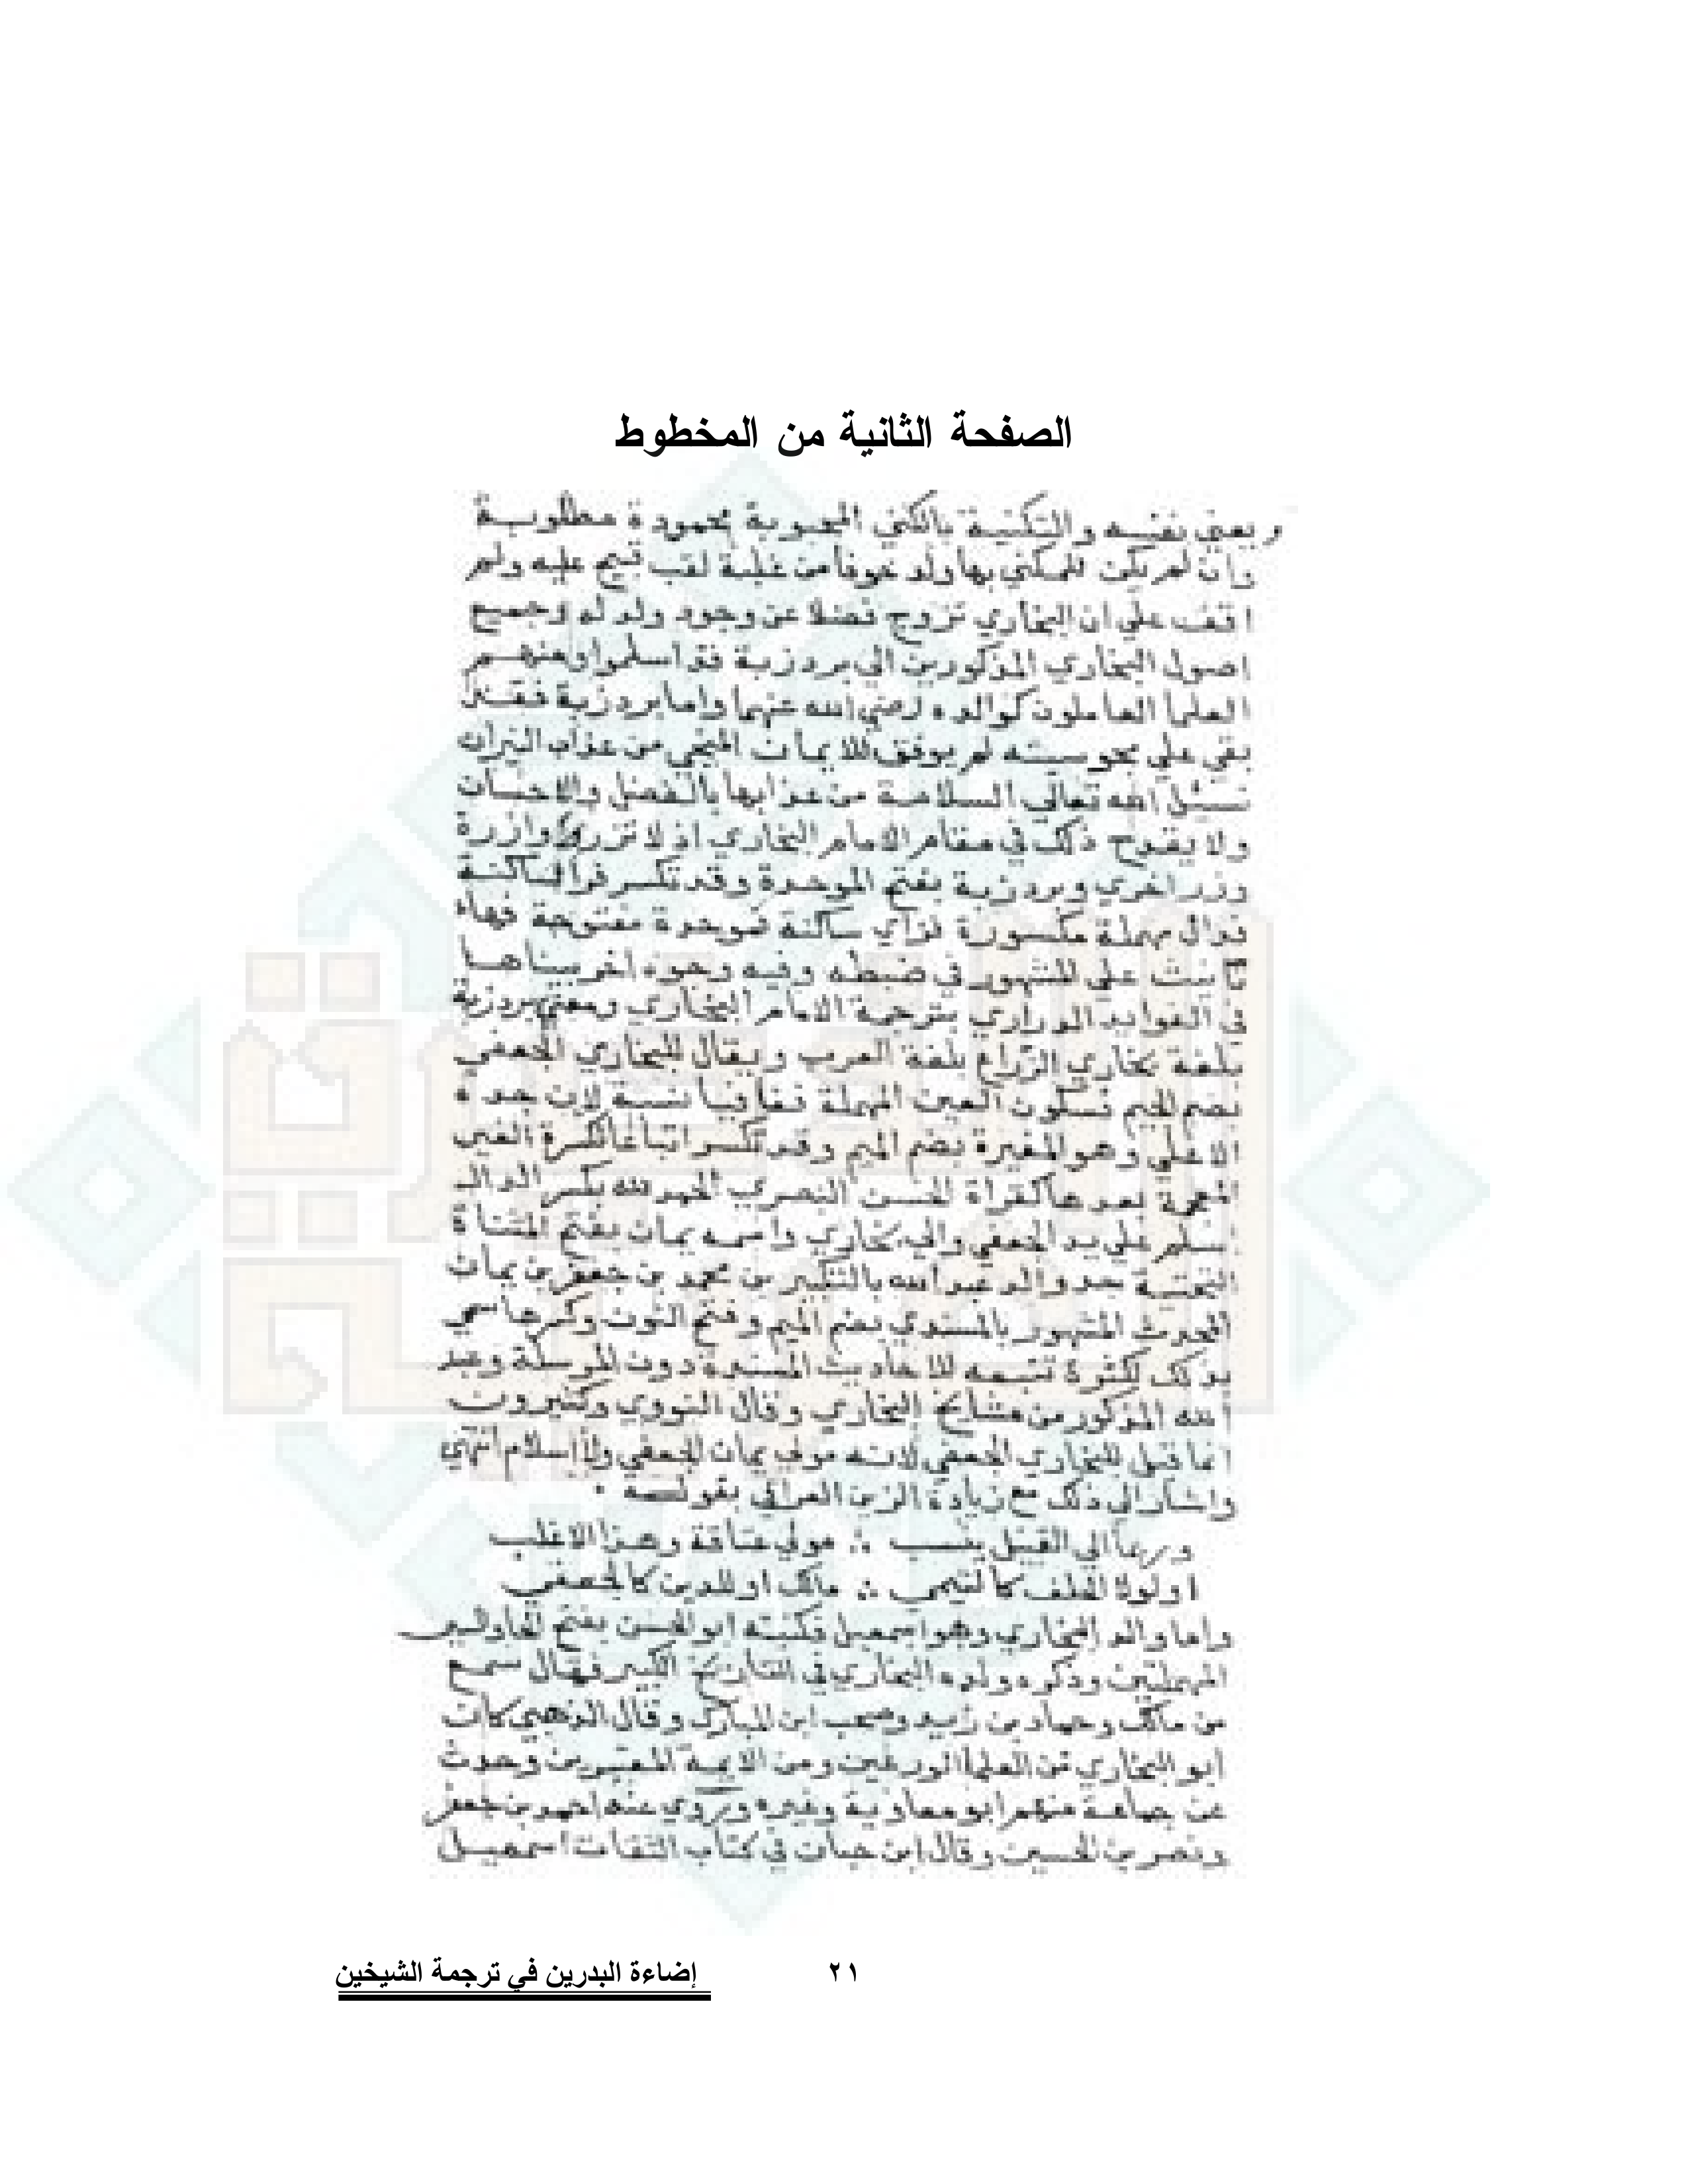 الصفحة الثانية من المخطوط
ويعني بنفسه والتكنية بالكني المحبوبة محمودة مطلوبة
وان لم يكن للمكني بها ولد خوفا من غلبة لقب قبيح عليه ولم
اقف علي ان البخاري تزوج فضلا عن وجود ولد له وجميع
اصول البخاري المذكورين الي بردزبة قد اسلموا ومنهم
العلما العاملون كوالده رضي الله عنهما واما بردزبة فقد
بقي علي مجوسيته لم يوفق للايمان المنجي من عذاب النيران
نسئل الله تعالي السلامة من عذابها بالفضل والاحسان
ولا يقدح ذلك في مقام الامام البخاري اذ لا تزر وازرة
وزر اخري وبردزبة بفتح الموحدة وقد تكسر فرا ساكنة
فدال مهملة مكسورة فزاي ساكنة فموحدة مفتوحة فهاء
تانيث علي المشهور في ضبطه وفيه وجوه اخر بيناها
في الفوايد الدراري بترجمة الامام البخاري ومعني بردزبة
بلغة بخاري الزراع بلغة العرب ويقال للبخاري الجعفي
بضم الجيم فسكون العين المهملة ففا فيا نسبة لان جده
الاعلي وهو المغيرة بضم الميم وقد تكسر اتباعا لكسرة الغين
المعجمة بعدها كقراة الحسن البصري الحمد لله بكسر الدال
اسلم علي يد الجعفي والي بخاري واسمه يمان بفتح المثناة
التحتية جد والد عبد الله بالتكبير بن محمد بن جعفر بن يمان
المحدث المشهور بالمسندي بضم الميم وفتح النون وكسرها سمي
بذلك لكثرة تتبعه للاحاديث المسندة دون المرسلة وعبد
الله المذكور من مشايخ البخاري وقال النووي وكثيرون
انما قيل للبخاري الجعفي لانه مولي يمان الجعفي ولا اسلام انتهي
واشار الي ذلك مع زيادة الزين العراقي بقوله
وربما الي القبيل ينسب ∴ مولي عتاقة وهذا الاغلب
او لولا الحلف كالتيمي ∴ مالك او للدين كالجعفي
واما والد البخاري وهو اسمعيل فكنيته ابو الحسن بفتح الحا والسين
المهملتين وذكره ولده البخاري في التاريخ الكبير فقال سمع
من مالك وحماد بن زيد وصحب ابن المبارك وقال الذهبي كان
ابو البخاري من العلما الورعين ومن الايمة المعتبرين وحدث
عن جماعة منهم ابو معاوية وغيره وروي عنه احمد بن جعفر
ونصر بن الحسين وقال ابن حبان في كتاب الثقات اسمعيل
٢١
إضاءة البدرين في ترجمة الشيخين